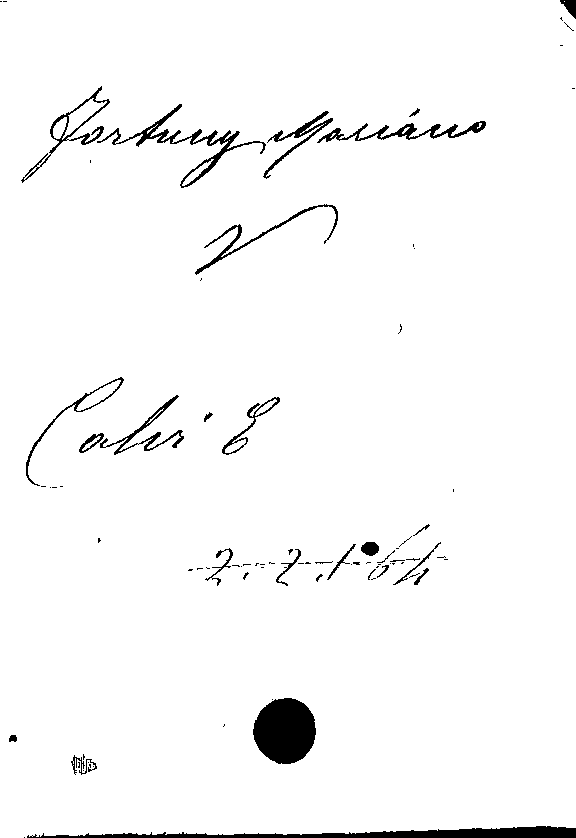 Fortuny, Mariano
V
Calvi E
2.2.164